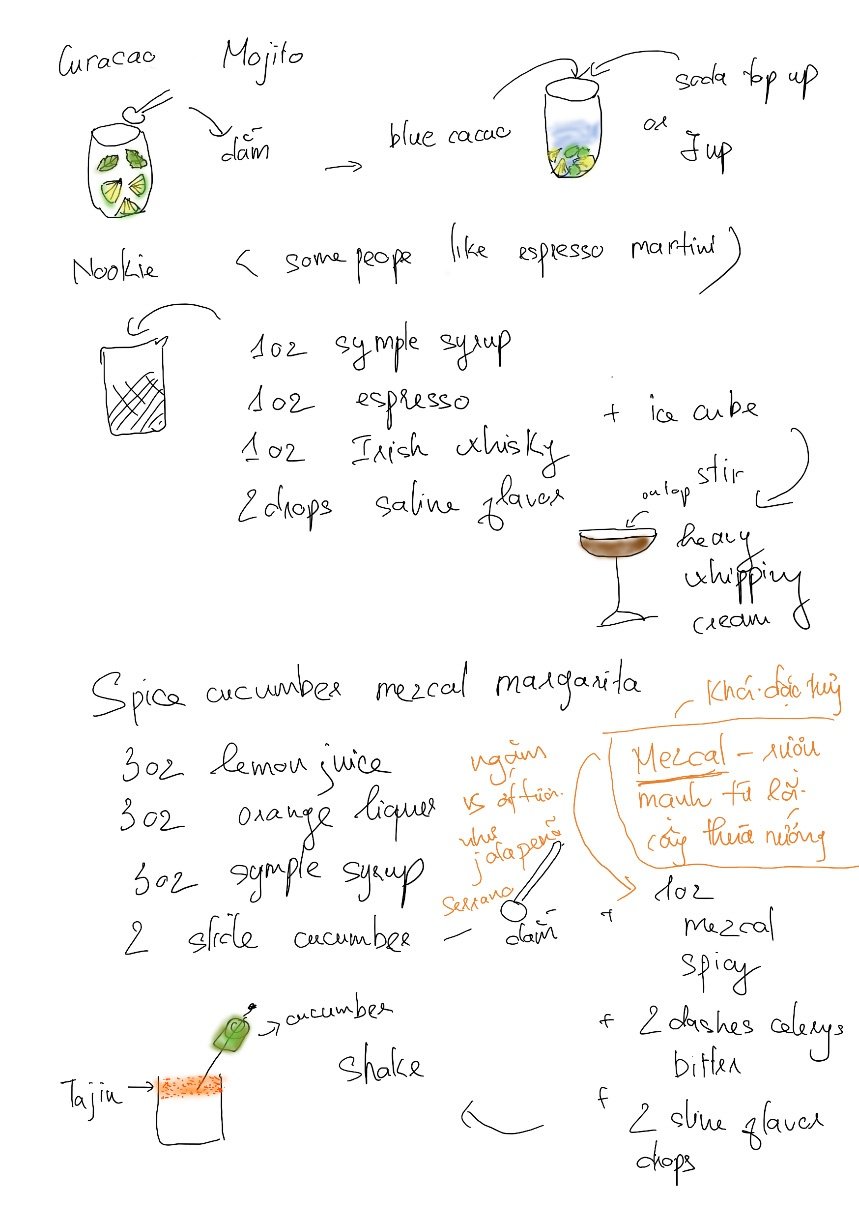 Curacao Mojito
dầm
→ blue cacao
soda top up
or 7up
Nookie < some peope like espresso martini )
1 oz symple syrup
1 oz espresso
1 oz Irish whisky
2 drops saline flavor
+ ice cube
stir
on top
heavy
whipping
cream
Spice cucumber mezcal margarita
3 oz lemon juice
3 oz orange liquer
3 oz symple syrup
2 slide cucumber –
dầm
ngâm
vs ớt tươi
như
jalapeño
Serrano
Khá đặc
Mezcal – rượu
mạnh từ lõi
cây thùa nướng
+ 1 oz
mezcal
spicy
+ 2 dashes celerys
bitter
+ 2 sline flavor
drops
shake
cucumber
Tajin →